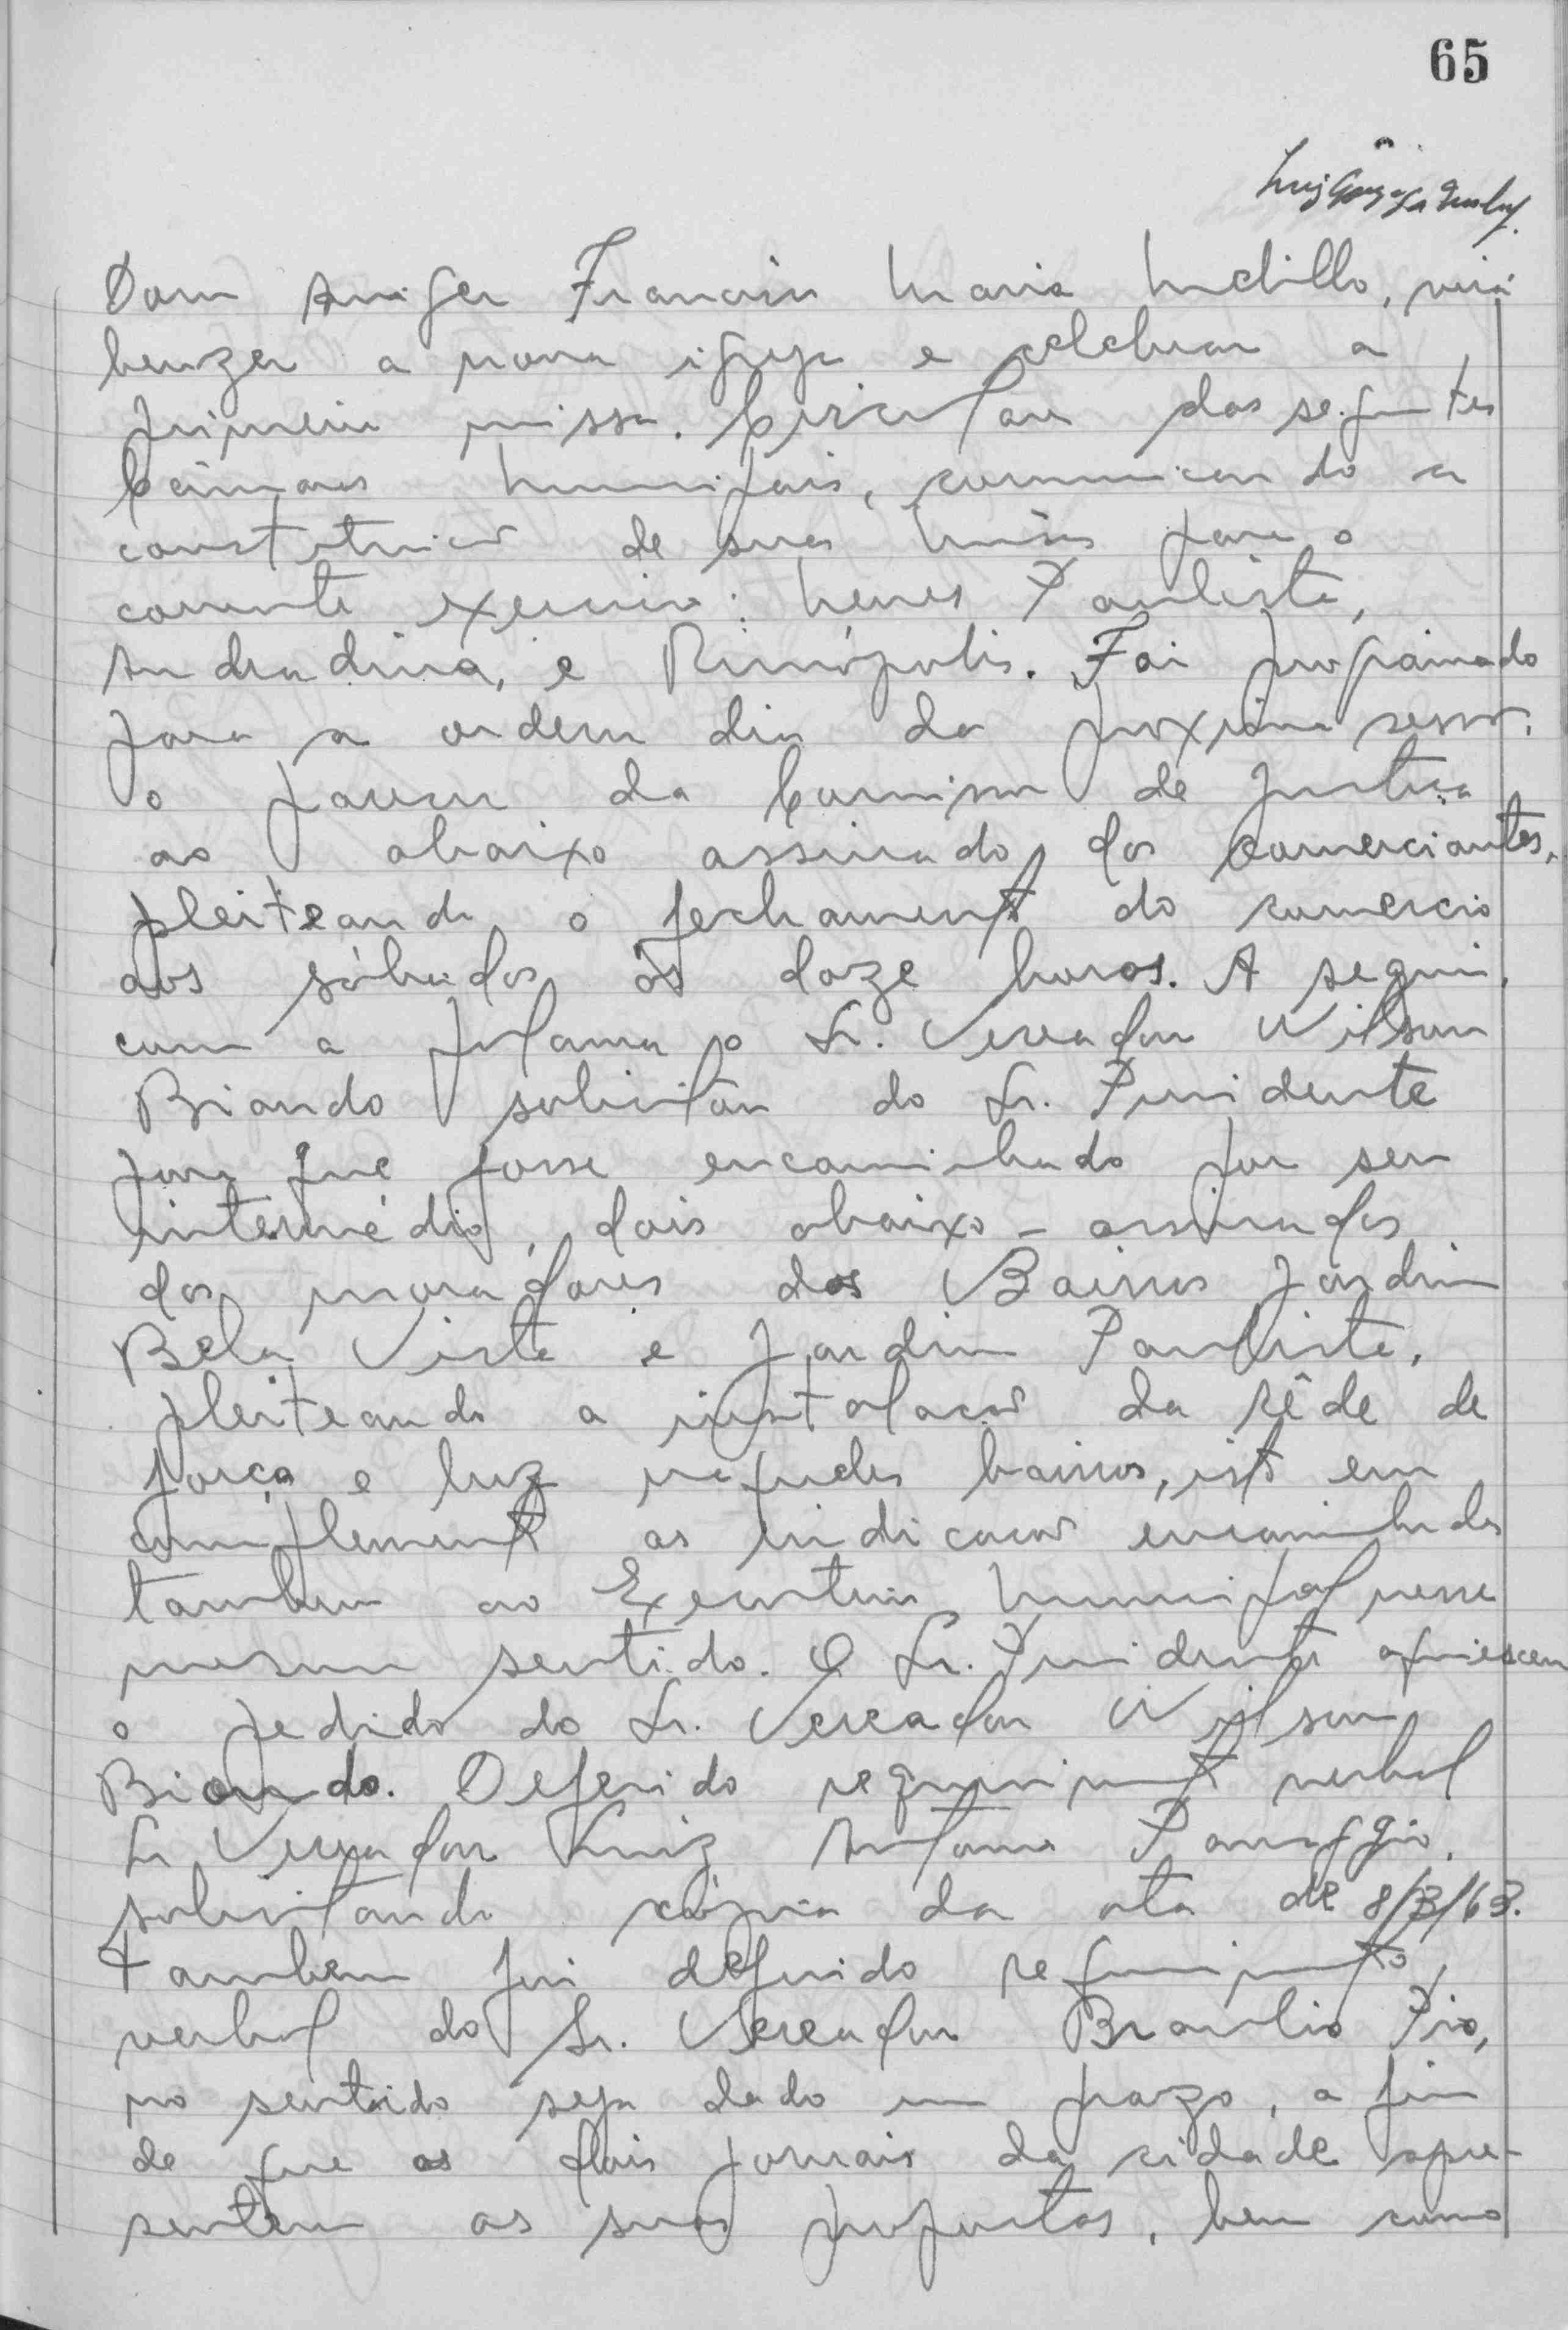 65
Dom Aniger Francisco Maria Melillo, virá
benzer a nova igreja e celebrar a
primeira missa. Circular das seguintes
Câmaras Municipais, comunicando a
constituicão de suas Mêsas para o
corrente exercicio: Neves Paulista,
Andradina, e Rinópolis. Foi programado
para a ordem dia da proxima sessão.
o parecer da Comissão de Justiça
ao abaixo assinado dos comerciantes,
pleiteando o fechamento do comercio
aos sábados às doze horas. A seguir,
com a palavra o Sr. Vereador Wilson
Biondo solicitou do Sr. Presidente
para que fosse encaminhado por seu
intermédio, dois abaixo-assinados
dos moradores dos Bairros Jardim
Bela Vista e Jardim Paulista,
pleiteando a instalacão da rêde de
força e luz naqueles bairros, isto em
complemento as indicacões encaminhadas
tambem ao Executivo Municipal nesse
mesmo sentido. O Sr. Presidente aquiesceu
o pedido do Sr. Vereador Wilson
Biondo. Deferido requerimento verbal
Sr Vereador Luiz Antonio
solicitando cópia da ata de 8/3/63.
Tambem foi deferido requerimento
verbal do Sr. Vereador Braulio Pio,
no sentido seja dado um prazo, a fim
de que os dois jornais da cidade apre-
sentem as suas propostas, bem como